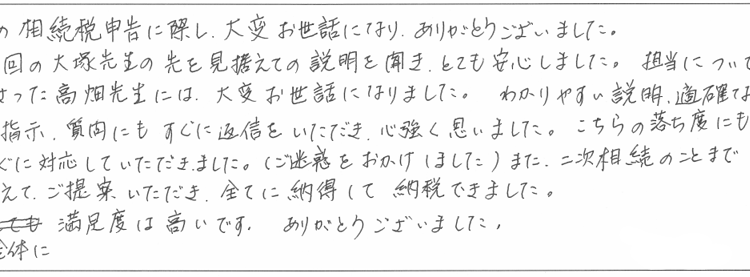 の相続税申告に際し、大変お世話になり、ありがとうございました。
回の大塚先生の先を見据えての説明を聞き、とても安心しました。担当について
さった高畑先生には、大変お世話になりました。わかりやすい説明、適確なお
指示、質問にもすぐに返信をいただき、心強く思いました。こちらの落ち度にも
ぐに対応していただきました。(ご迷惑をおかけしました)また、二次相続のことまで
えて、ご提案いただき、全てに納得して納税できました。
ても 満足度は高いです。ありがとうございました。
全体に